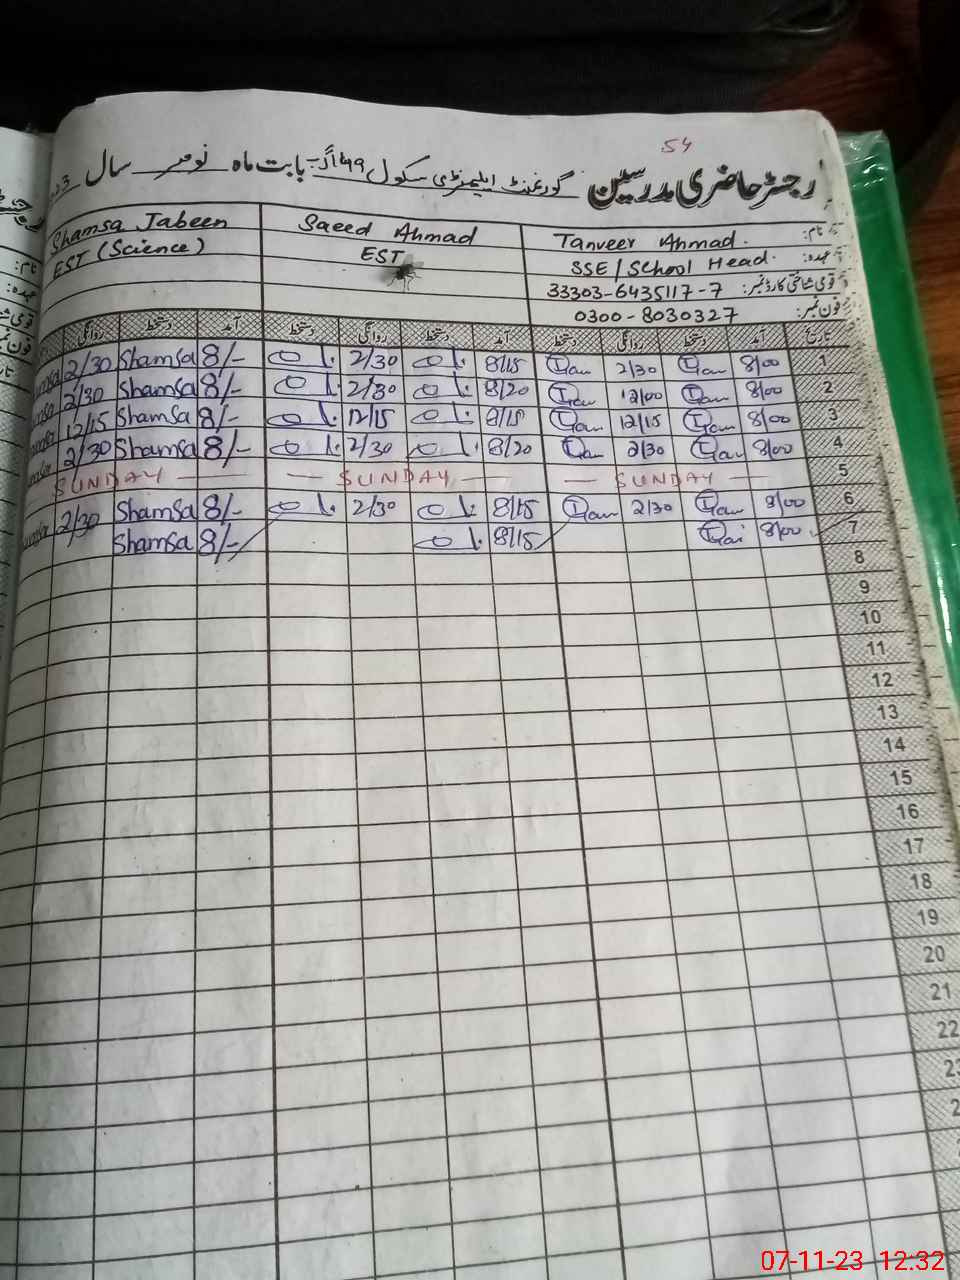 54
رجسٹر حاضری مدرسین گورنمنٹ ایلیمنٹری سکول بابت ماہ نومبر سال
نام: Tanveer Ahmad. Saeed Ahmad Shamsa Jabeen
عہدہ: SSE/School Head. EST EST (Science)
قومی شناختی کارڈ نمبر: 33303-6435117-7
فون نمبر: 0300-8030327
تاریخ آمد دستخط روانگی دستخط آمد دستخط روانگی دستخط آمد دستخط روانگی
1 8/00 2/30 8/15 2/30 8/- Shamsa 2/30
2 8/00 12/00 8/20 2/30 8/- Shamsa 2/30
3 8/00 12/15 8/15 12/15 8/- Shamsa 12/15
4 8/00 2/30 8/20 2/30 8/- Shamsa 2/30
5 — SUNDAY — — SUNDAY — SUNDAY —
6 8/00 2/30 8/15 2/30 8/- Shamsa 2/30
7 8/00 8/15 8/- Shamsa
8
9
10
11
12
13
14
15
16
17
18
19
20
21
22
07-11-23 12:32